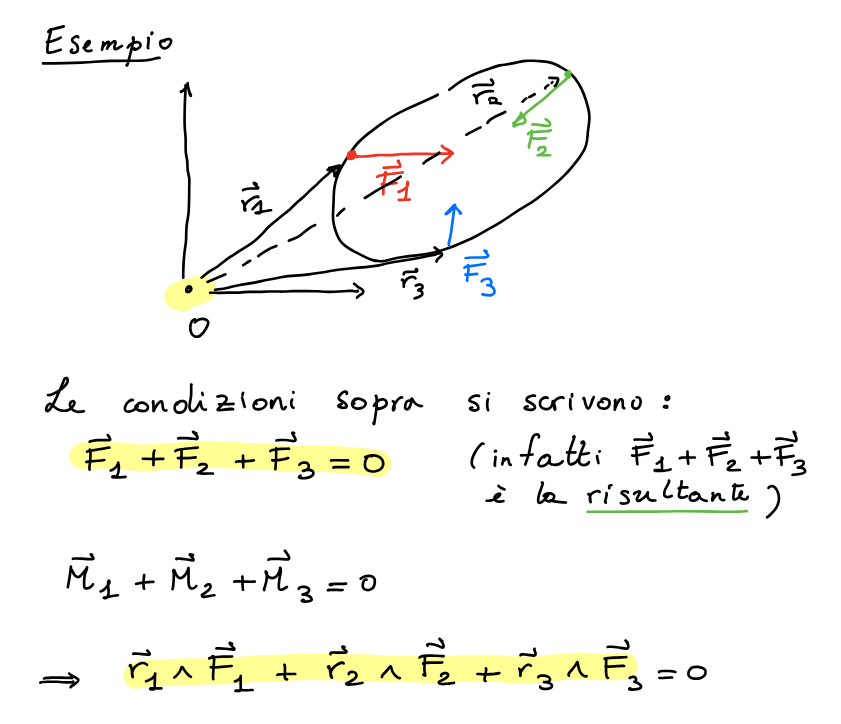 Esempio
r⃗2
F⃗2
F⃗1
r⃗1
r⃗3
F⃗3
O
Le condizioni sopra si scrivono :
F⃗1 + F⃗2 + F⃗3 = 0 (infatti F⃗1 + F⃗2 + F⃗3
è la risultante)
M⃗1 + M⃗2 + M⃗3 = 0
⟹ r⃗1 ∧ F⃗1 + r⃗2 ∧ F⃗2 + r⃗3 ∧ F⃗3 = 0